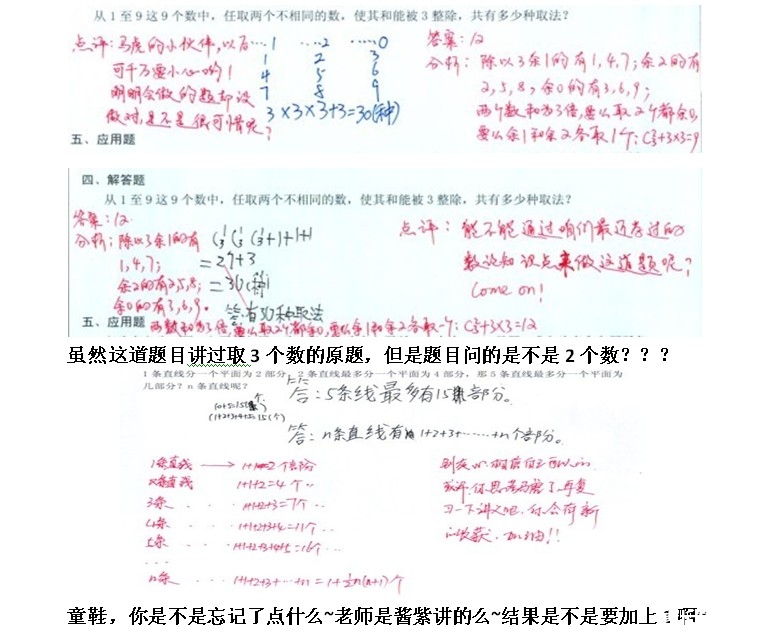 从1至9这9个数中，任取两个不相同的数，使其和能被3整除，共有多少种取法？
点评：马虎的小伙伴，以后
可千万要小心哟！
明明会做的题却没
做对，是不是很可惜呢？
…1 …2 ……0
1 2 3
4 5 6
7 8 9
3×3×3+3=30(种)
答案：12
分析：除以3余1的有1,4,7；余2的有
2,5,8；余0的有3,6,9；
两个数和为3倍，要么取2个都余0，
要么余1和余2各取1个：C²₃+3×3=9
五、应用题
四、解答题
从1至9这9个数中，任取两个不相同的数，使其和能被3整除，共有多少种取法？
答案：12
分析：除以3余1的有
1,4,7；
余2的有2,5,8；
余0的有3,6,9。
C¹₃C¹₃C¹₃+1+1+1
=27+3
=30(种)
答：有30种取法
点评：能不能通过咱们最近学过的
数论知识点来做这道题呢？
Come on！
五、应用题
两数和为3倍，要么取2个都余0，要么余1和余2各取一个：C²₃+3×3=12
虽然这道题目讲过取3个数的原题，但是题目问的是不是2个数？？？
1条直线分一个平面为2部分，2条直线最多分一个平面为4部分，那5条直线最多分一个平面为
几部分？n条直线呢？
答：5条线最多有15部分。
10+5=15(个)
(1+2+3+4+5=15(个)
答：n条直线有1+2+3+……+n个部分。
1条直线 → 1+1=2个部分
2条直线 1+1+2=4个
3条 …… 1+1+2+3=7个
4条 …… 1+1+2+3+4=11个
5条 …… 1+1+2+3+4+5=16个
……
n条 …… 1+1+2+3+…+n=1+½n(n+1)个
复
习一下讲义吧，你会有新
的收获，加油！！
童鞋，你是不是忘记了点什么~老师是酱紫讲的么~结果是不是要加上1啊